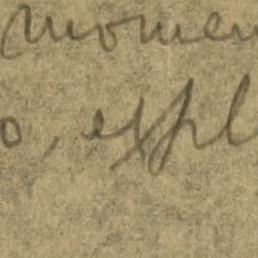 momen
o, expl